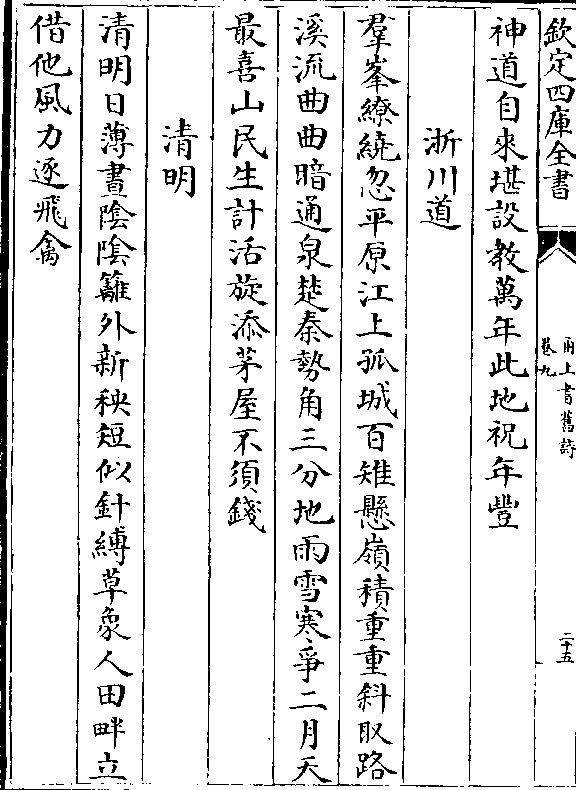 欽定四庫全書
甬上耆舊詩
卷九
二十五
神道自來堪設教萬年此地祝年豐
浙川道
羣峯繚繞忽平原江上孤城百雉懸嶺積重重斜取路
溪流曲曲暗通泉楚秦勢角三分地雨雪寒爭二月天
最喜山民生計活旋添茅屋不須錢
清明
清明日薄晝陰陰籬外新秧短似針縛草象人田畔立
借他風力逐飛禽